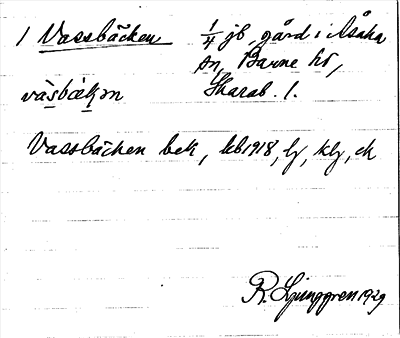 1 Vassbäcken 1/4 jb, gård i Åsaka
sn, Barne hd,
vàsbäkən Skarab. l.
Vassbäcken bek, kb 1918, lj, klj, ck
R. Ljunggren 1929